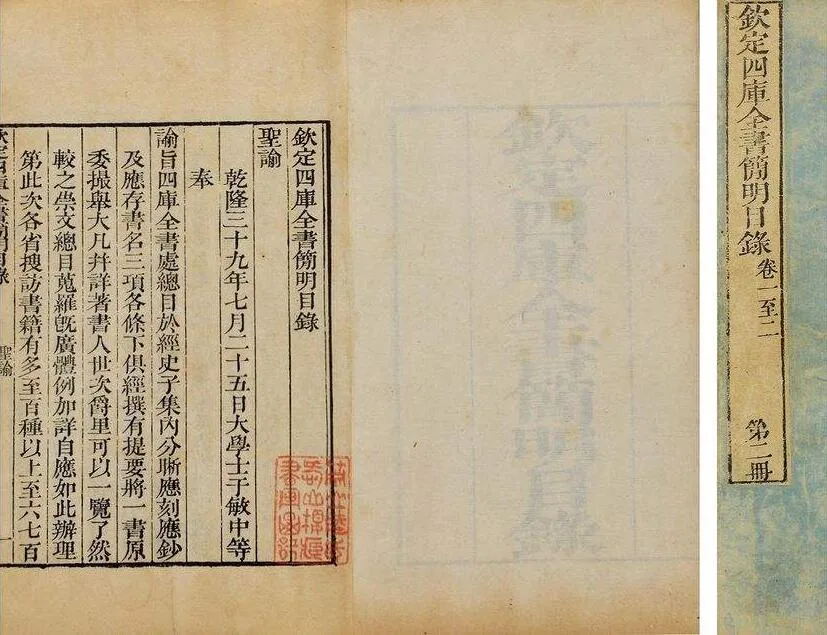 欽定四庫全書簡明目錄
聖諭
乾隆三十九年七月二十五日大學士于敏中等
奉
諭旨四庫全書處總目於經史子集內分晰應刻應鈔
及應存書名三項各條下俱經撰有提要將一書原
委撮舉大凡幷詳著書人世次爵里可以一覽了然
較之崇文總目蒐羅旣廣體例加詳自應如此辦理
第此次各省搜訪書籍有多至百種以上至六七百
欽定四庫全書簡明目錄
聖諭
一
欽定四庫全書簡明目錄
欽定四庫全書簡明目錄
卷一至二
第二冊